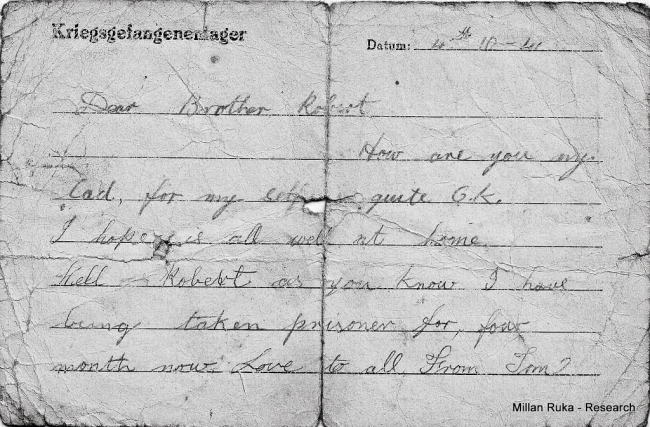 Kriegsgefangenenlager
Datum: 4th 10-41
Dear Brother Robert
How are you my
Lad, for my self quite O.K.
I hope is all well at home.
Well Robert as you know I have
being taken prisoner for, four
month now. Love to all. From Tom
Millan Ruka - Research